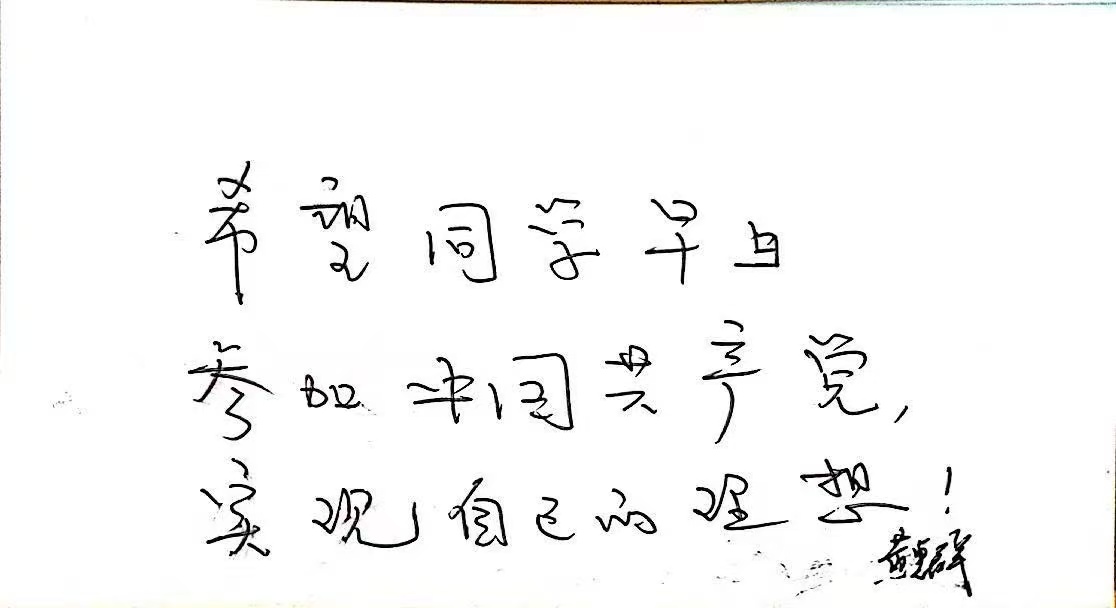 希望同学早日
参加中国共产党,
实现自己的理想!